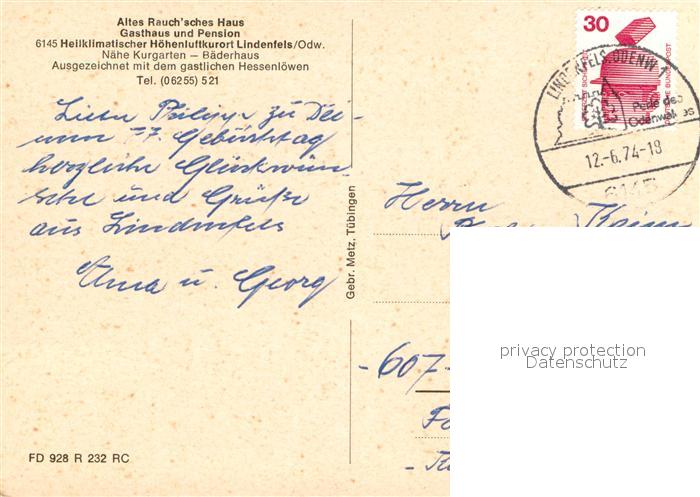 Altes Rauch'sches Haus
Gasthaus und Pension
6145 Heilklimatischer Höhenluftkurort Lindenfels/Odw.
Nähe Kurgarten – Bäderhaus
Ausgezeichnet mit dem gastlichen Hessenlöwen
Tel. (06255) 521
30
DEUTSCHE BUNDESPOST
LINDENFELS, ODENW 1
Perle des
Odenwaldes
12.-6.74-18
6145
Lieber Philipp zu Dei-
nem 77. Geburtstag
herzliche Glückwün-
sche und Grüße
aus Lindenfels
Anna u. Georg
Gebr. Metz, Tübingen
Herrn
-607-
privacy protection
Datenschutz
FD 928 R 232 RC